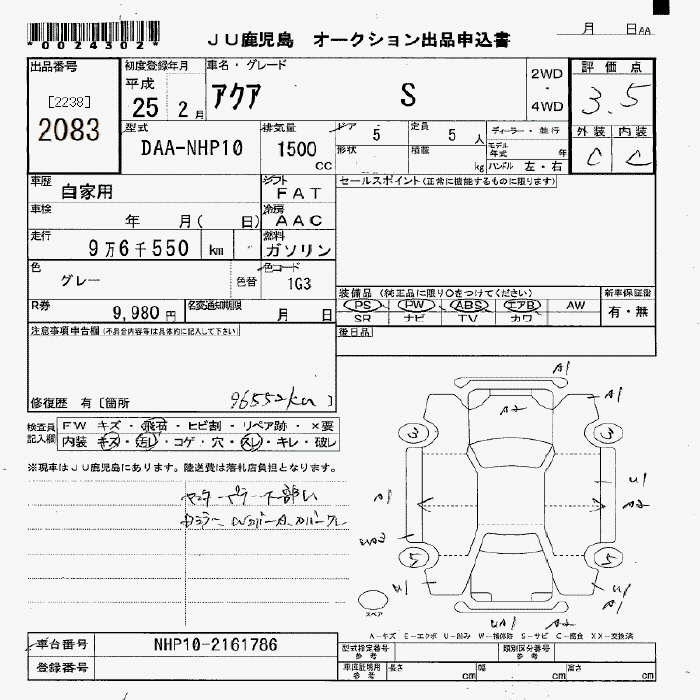 *0024302*
月 日 AA
JU鹿児島 オークション出品申込書
出品番号
[2238]
2083
初度登録年月
平成
25 2月
車名・グレード
アクア S
2WD
・
4WD
評価点
3.5
外装 内装
C C
型式
DAA-NHP10
排気量
1500
CC
ドア
5
定員
5 人
形状
積載
kg
ディーラー・並行
モデル年式 年
ハンドル 左・右
車歴
自家用
シフト
FAT
車検
年 月( 日)
冷房
AAC
走行
9万6千550 km
燃料
ガソリン
色
グレー
色替
色コード
1G3
R券
9,980円
名変通知期限
月 日
セールスポイント(正常に機能するものに限ります)
装備品 (純正品に限り〇をつけてください)
PS PW ABS エアB AW
SR ナビ TV カワ
新車保証書
有・無
後日品
注意事項申告欄(不具合内容等は具体的に記入して下さい)
修復歴 有[箇所 96552km ]
検査員記入欄
FW キズ・飛石・ヒビ割・リペア跡・×要
内装 キズ・汚し・コゲ・穴・スレ・キレ・破レ
※現車はJU鹿児島にあります。陸送費は落札店負担となります。
A1
A1
A2
3 3
A1
U1
A2
5 5
U1
U1
A2
UA1 A2
スペア
A-キズ E-エクボ U-凹み W-補修跡 S-サビ C-腐食 XX-交換済
車台番号
NHP10-2161786
登録番号
型式指定番号
参考
類別区分番号
参考
車庫証明用
参考
長さ cm
幅 cm
高さ cm